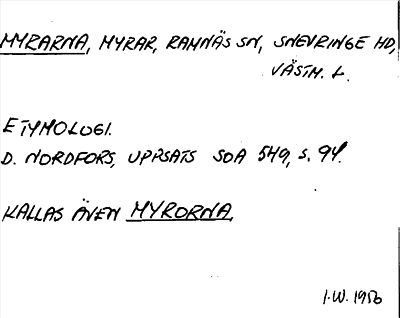 MYRARNA, MYRAR, RAMNÄS SN, SNEVRINGE HD,
VÄSTM. L.
ETYMOLOGI.
D. NORDFORS, UPPSATS SOA 549, S. 94.
KALLAS ÄVEN MYRORNA.
I.W. 1956